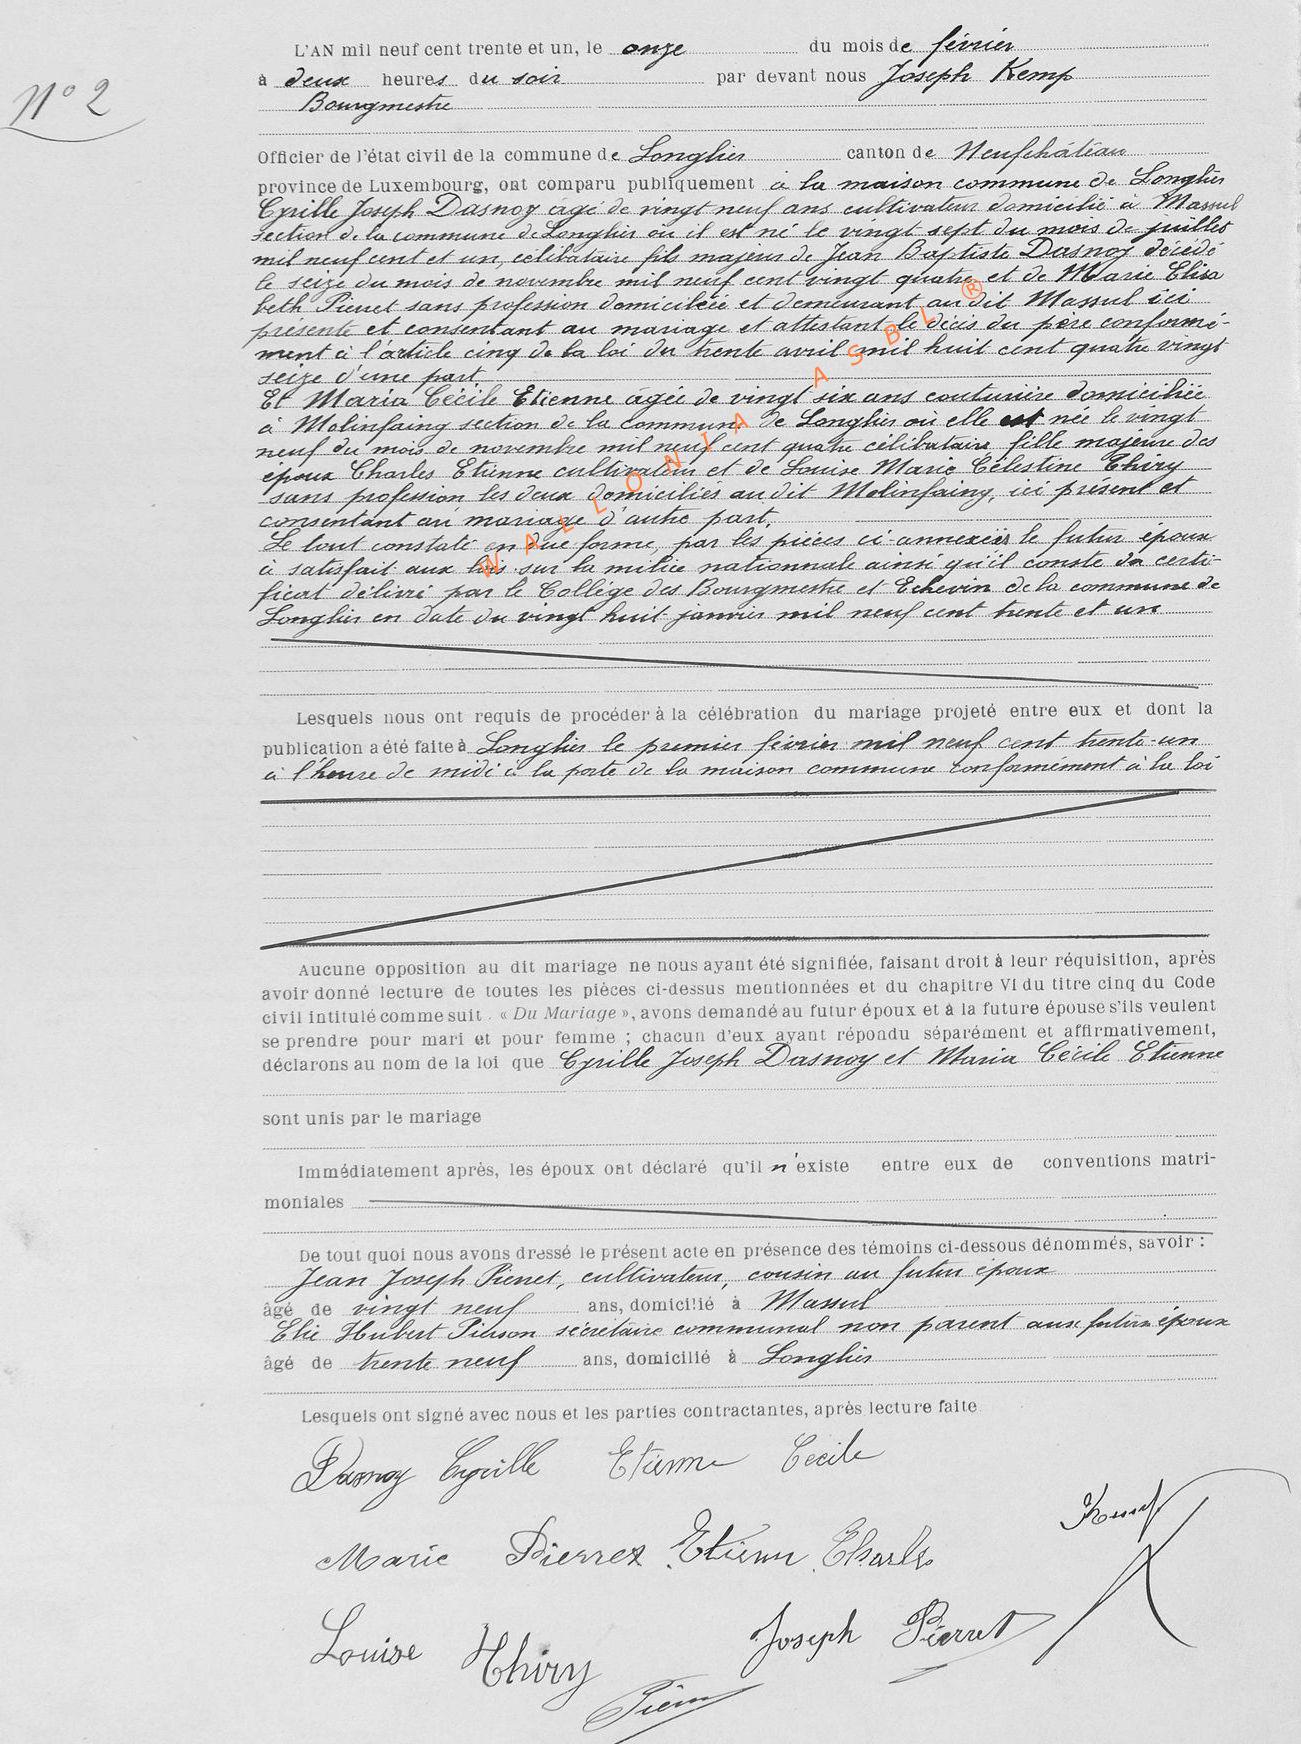 N° 2
L'AN mil neuf cent trente et un, le onze du mois de février
à deux heures du soir par devant nous Joseph Kemp
Bourgmestre
Officier de l'état civil de la commune de Longlier canton de Neufchâteau
province de Luxembourg, ont comparu publiquement à la maison commune de Longlier
Cyrille Joseph Dasnoy âgé de vingt neuf ans cultivateur domicilié à Massul
section de la commune de Longlier où il est né le vingt sept du mois de juillet
mil neuf cent et un, célibataire fils majeur de Jean Baptiste Dasnoy décédé
le seize du mois de novembre mil neuf cent vingt quatre et de Marie Elisa
beth Pierret sans profession domiciliée et demeurant au dit Massul ici
présente et consentant au mariage et attestant le décès du père conformé-
ment à l'article cinq de la loi du trente avril mil huit cent quatre vingt
seize d'une part
Et Maria Cécile Etienne âgée de vingt six ans couturière domiciliée
à Molinfaing section de la commune de Longlier où elle est née le vingt
neuf du mois de novembre mil neuf cent quatre célibataire, fille majeure des
époux Charles Etienne cultivateur et de Louise Marie Célestine Thiry
sans profession les deux domiciliés au dit Molinfaing, ici présent et
consentant au mariage d'autre part.
Le tout constaté en due forme, par les pièces ci-annexées le futur époux
à satisfait aux lois sur la milice nationale ainsi qu'il conste du certi-
ficat délivré par le Collége des Bourgmestre et Echevin de la commune de
Longlier en date du vingt huit janvier mil neuf cent trente et un
Lesquels nous ont requis de procéder à la célébration du mariage projeté entre eux et dont la
publication a été faite à Longlier le premier février mil neuf cent trente-un
à l'heure de midi à la porte de la maison commune conformément à la loi
Aucune opposition au dit mariage ne nous ayant été signifiée, faisant droit à leur réquisition, après
avoir donné lecture de toutes les pièces ci-dessus mentionnées et du chapitre VI du titre cinq du Code
civil intitulé comme suit : « Du Mariage », avons demandé au futur époux et à la future épouse s'ils veulent
se prendre pour mari et pour femme ; chacun d'eux ayant répondu séparément et affirmativement,
déclarons au nom de la loi que Cyrille Joseph Dasnoy et Maria Cécile Etienne
sont unis par le mariage
Immédiatement après, les époux ont déclaré qu'il n'existe entre eux de conventions matri-
moniales
De tout quoi nous avons dressé le présent acte en présence des témoins ci-dessous dénommés, savoir :
Jean Joseph Pierret, cultivateur, cousin au futur époux
âgé de vingt neuf ans, domicilié à Massul
Elie Hubert Pierson secrétaire communal non parent aux futurs époux
âgé de trente neuf ans, domicilié à Longlier
Lesquels ont signé avec nous et les parties contractantes, après lecture faite
Dasnoy Cyrille Etienne Cécile
Kemp
Marie Pierret Etienne Charles
Louise Thiry Joseph Pierret
WALLONIA ASBL ®